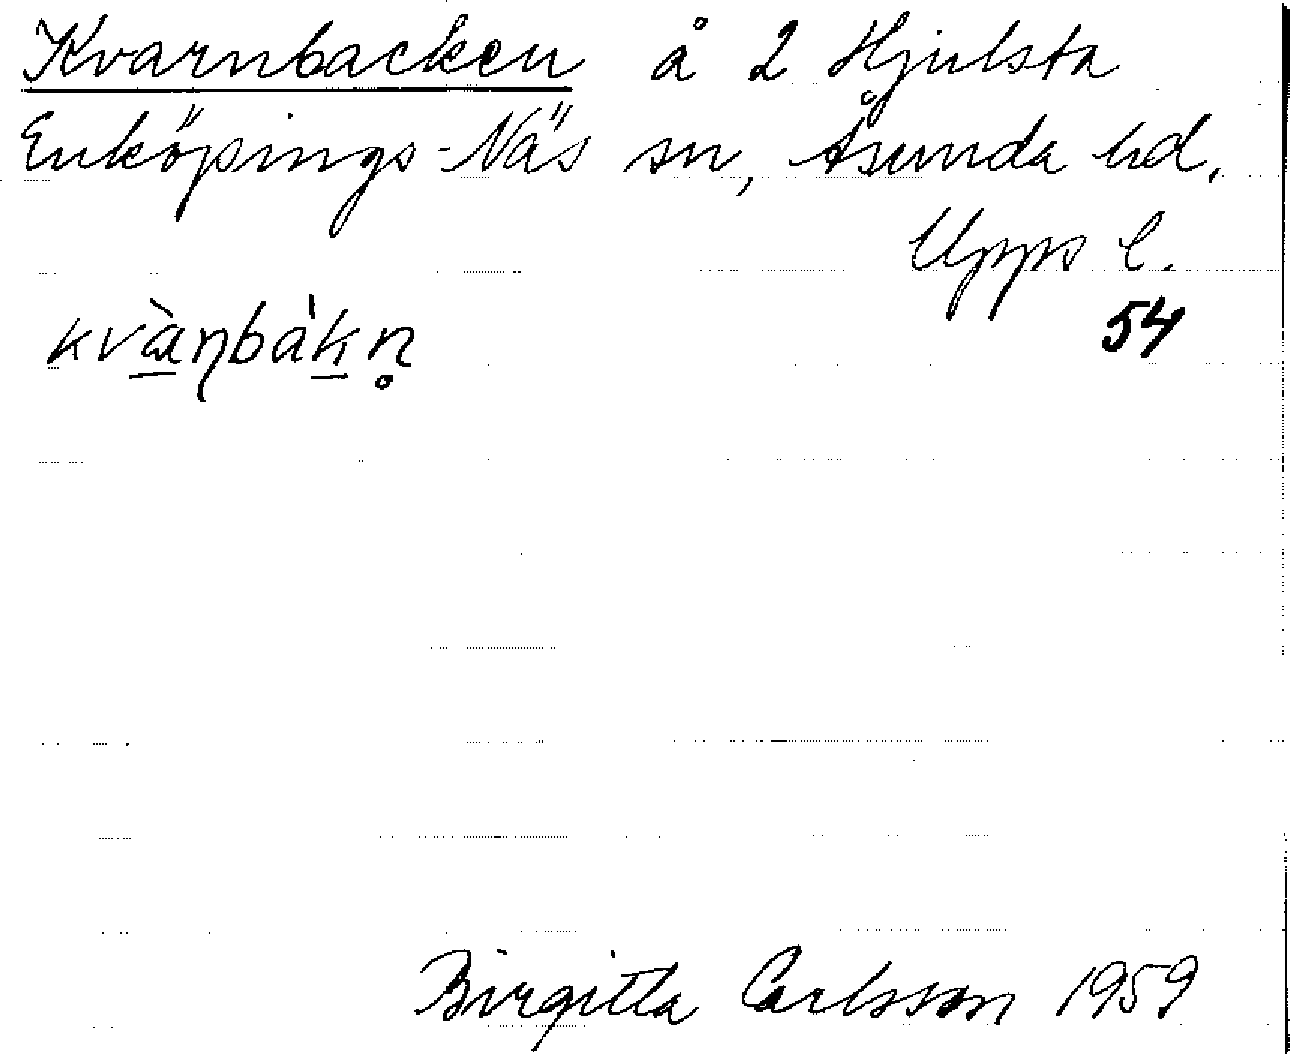 Kvarnbacken å 2 Hjulsta
Enköpings-Näs sn, Åsunda hd.
Upps l.
54
kvàɳbàkn̥
Birgitta Carlsson 1959